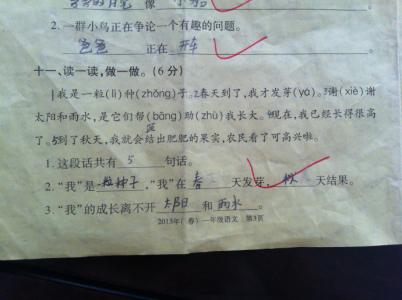 像 小船
2. 一群小鸟正在争论一个有趣的问题。
爸爸 正在 开车
十一、读一读，做一做。(6分)
1我是一粒(lì)种(zhǒng)子。2春天到了，我才发芽(yá)。3谢(xiè)谢
太阳和雨水，是它们帮(bāng)助(zhù)我长大。4现在，我已经长得很高
了。5到了秋天，我就会结出肥肥的果实，农民看了可高兴啦。
1. 这段话共有 5 句话。
2. “我”是一粒种子，“我”在 春 天发芽， 秋 天结果。
3. “我”的成长离不开 太阳 和 雨水 。
2013年(春)一年级语文 第3页